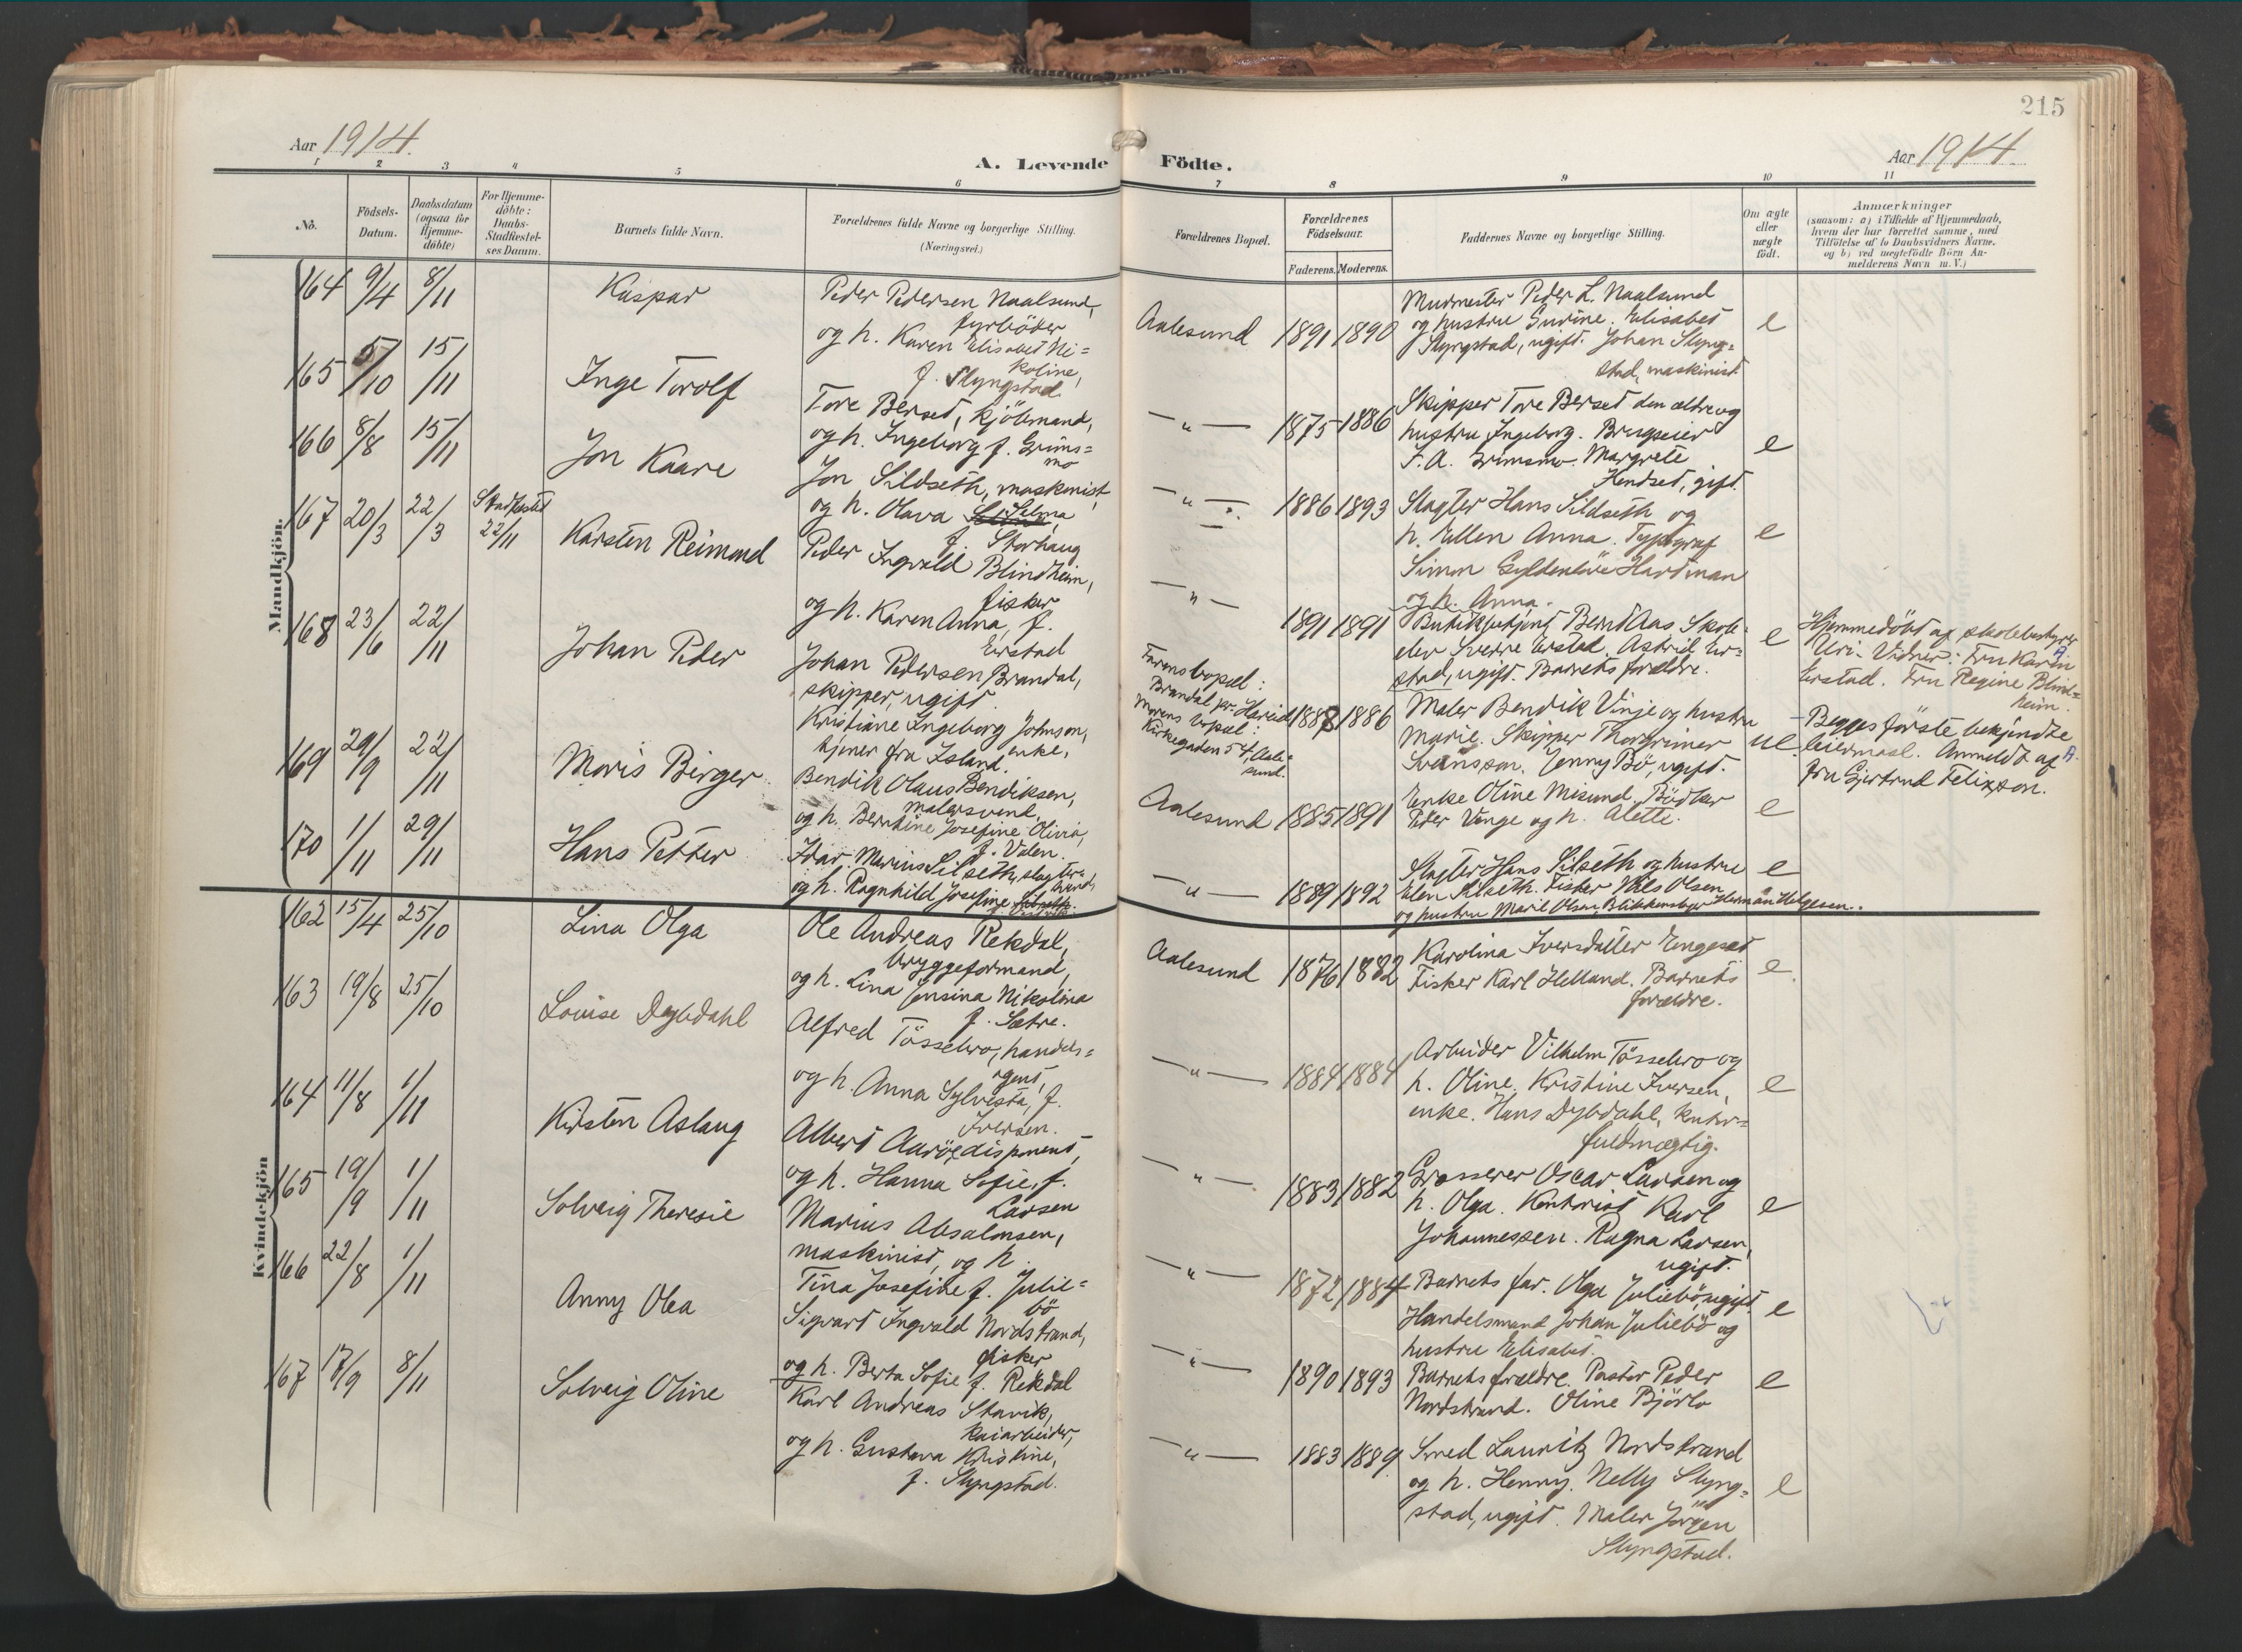 215
Aar 1914.
A. Levende Födte.
Aar 1914.
1 2 3 4 5 6 7 8 9 10 11
No.
Födsels-
Datum.
Daabsdatum
(ogsaa for
Hjemme-
döbte)
For Hjemme-
döbte:
Daabs-
Stadfæstel-
ses Datum.
Barnets fulde Navn.
Forældrenes fulde Navne og borgerlige Stilling.
(Næringsvei.)
Forældrenes Bopæl.
Forældrenes
Födselsaar.
Faderens. Moderens.
Faddernes Navne og borgerlige Stilling.
Om ægte
eller
uægte
født.
Anmærkninger
(saasom: a) i Tilfælde af Hjemmedaab,
hvem der har forrettet samme, med
Tilföielse af to Daabsvidners Navne.
og b) ved uægtefödte Börn An-
melderens Navn m.V.)
Mandkjön.
164 9/4 8/11
Kaspar
Peder Pedersen Naalsund,
fyrböder
og h. Karen Elisabet Ni=
koline,
f. Slyngstad.
Aalesund
1891 1890
Murmester Peder L. Naalsund
og hustru Gurine. Elisabet
Slyngstad, ugift. Johan Slyng=
stad, maskinist.
e
165 5/10 15/11
Inge Torolf
Tore Berset, kjöbmand,
og h. Ingeborg f. Grims=
mo
— " —
1875 1886
Skipper Tore Berset den ældre og
hustru Ingeborg. Brugseier
F. A. Grimsmo. Margrete
Hendset, gift.
e
166 8/8 15/11
Jon Kaare
Jon Sildseth, maskinist,
og h. Olava Selma,
f. Storhaug
— " —
1886 1893
Slagter Hans Sildseth og
h. Ellen Anna. Typograf
Simon Gyldenlöve Hartman
og h. Anna.
e
167 20/3 22/3
Stadfæstet
22/11
Karsten Reimond
Peder Ingvald Blindheim,
fisker
og h. Karen Anna, f.
Erstad
— " —
1891 1891
Bernt Aas Skole-
elev Sverre Erstad. Astrid Er=
stad, ugift. Barnets forældre.
e
Hjemmedöbt af skolebestyrer
Uri. Vidner: Fru Karin
Erstad. Fru Regine Blind=
heim.
168 23/6 22/11
Johan Peder
Johan Pedersen Brandal,
skipper, ugift.
Kristiane Ingeborg Johnson,
enke,
tjener fra Island.
Farens bopæl:
Brandal pr. Hareid
Morens bopæl:
Kirkegaden 54, Aale=
sund.
1888 1886
Maler Bendik Vinje og hustru
Marie. Skipper Thorgrimer
Sveinsson. Jenny Bö, ugift.
ue
Begges förste bekjendte
leiermaal. Anmeldt af
Fru Gjertrud Felixson.
169 29/9 22/11
Moris Birger
Bendik Olaus Bendiksen,
malersvend,
og h. Berntine Josefine Olivia,
f. Valen.
Aalesund
1885 1891
Enke Oline Mesund. Bödker
Peder Vinge og h. Alette.
e
170 1/11 29/11
Hans Petter
Idar Marius Silseth, slagter-
svend,
og h. Ragnhild Josefine
— " —
1889 1892
Slagter Hans Silseth og hustru
Elen Silseth. Fisker Nils Olsen
og hustru Marie Olsen. Blikkenslager Herman Helgesen.
e
Kvindekjön
162 15/4 25/10
Lina Olga
Ole Andreas Rekdal,
bryggeformand,
og h. Lina Jensina Nikolina
f. Sætre.
Aalesund
1876 1882
Karolina Iversdatter Engeset
Fisker Karl Helland. Barnets
forældre.
e
163 19/8 25/10
Louise Dybdahl
Alfred Tösselro, handels=
agent,
og h. Anna Sylvesta, f.
Iversen.
— " —
1884 1884
Arbeider Vilhelm Tösselro og
h. Oline. Kristine Iversen,
enke. Hans Dybdahl, kontor=
fuldmægtig.
e
164 11/8 1/11
Kirsten Aslaug
Albert Aaröe, disponent,
og h. Hanna Sofie, f.
Larsen
— " —
1883 1882
Grosserer Oscar Larsen og
h. Olga. Kontorist Karl
Johannessen. Ragna Larsen,
ugift.
e
165 19/9 1/11
Solveig Theresie
Marius Absalonsen,
maskinist, og h.
Tina Josefine f. Julie=
bö
— " —
1872 1884
Barnets far. Olga Juliebö, ugift.
Handelsmand Johan Juliebö og
hustru Elisabet.
e
166 22/8 1/11
Anny Olea
Sigvart Ingvald Nordstrand,
fisker
og h. Berta Sofie f. Rekdal
— " —
1890 1893
Barnets forældre. Pastor Peder
Nordstrand. Oline Björlo
e
167 17/9 8/11
Solveig Oline
Karl Andreas Stavik,
kaiarbeider,
og h. Gustava Kristine,
f. Slyngstad.
— " —
1883 1889
Smed Lauritz Nordstrand
og h. Henny. Nelly Slyng=
stad, ugift. Maler Jörgen
Slyngstad.
e